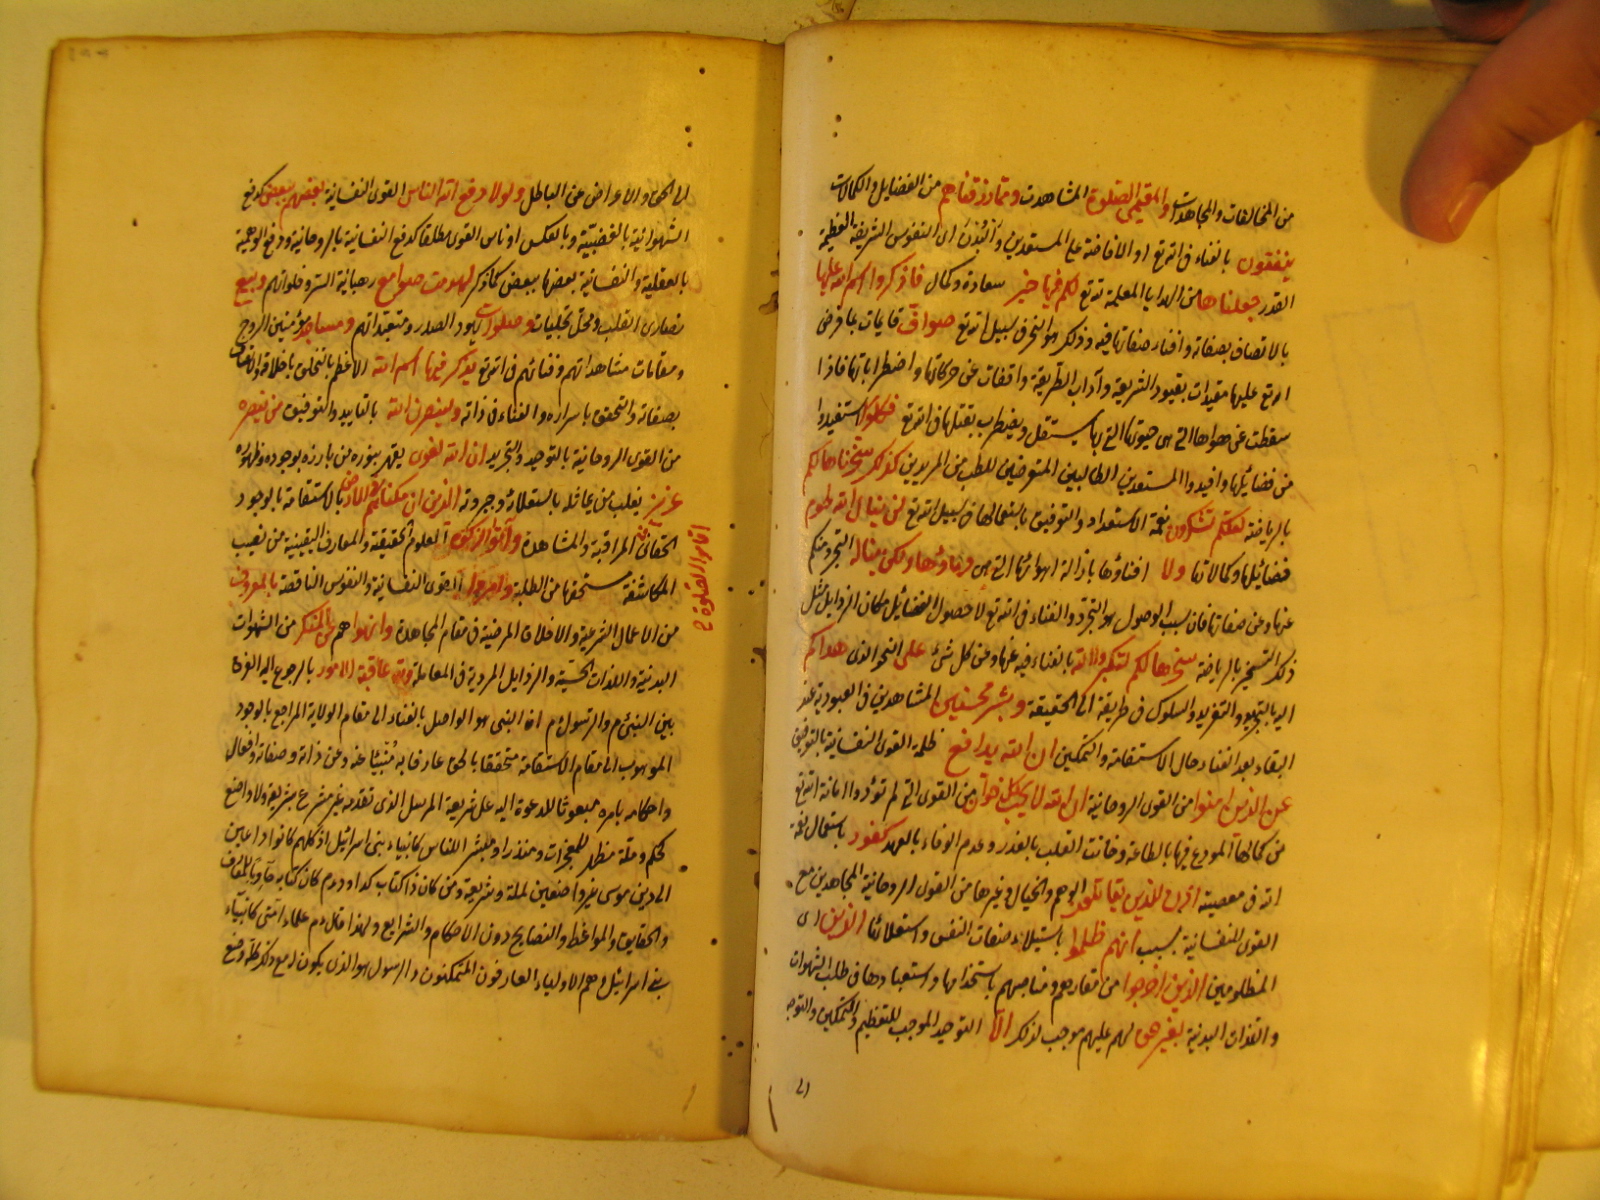 من المخالفات والمجاهدات والمقيمى الصلوة المشاهدت ومما رزقناهم من الفضايل والكمالات
ينفقون بالفناء فى الله تع او الافاضة على المستعدين والبُدْنَ اى النفوس الشريفة العظيمة
القدر جعلناها من الهدايا المعلمة لله تع لكم فيها خير سعادة وكمال فاذكروا اسم الله عليها
بالاتصاف بصفاته وافناء صفاتها فيه وذلك هو النحر فى سبيل الله تع صوافّ قايمات بما فرض
الله تع عليها مقيدات بقيود الشريعة وآداب الطريقة واقفات عن حركاتها واضطراباتها فاذا
سقطت عن هواها التى هى حيوتها التى بها يستقل ويضطرب بقتلها فى الله تع فكلوا استفيدوا
من فضائلها وافيدوا المستعدين الطالبين المتعرضين للطلب من المريدين كذلك سخرناها لكم
بالرياضة لعلكم تشكرون نعمة الاستعداد والتوفيق باستعمالها فى سبيل الله تع لن ينال الله لحومها
فضائلها وكمالاتها ولا دماؤها افناؤها بازالة اهوائها التى هى ولكن يناله التجرد منكم
عنها وعن صفاتها فان سبب الوصول هو التجرد والفناء فى الله تع لا حصول الفضائل مكان الرذايل مثل
ذلك التسخير بالرياضة سخرها لكم لتكبروا الله بالفناء فيه عنها وعن كل شئ على النحو الذى هداكم
اليه بالتجريد والتفريد والسلوك فى طريقة الى الحقيقة وبشر المحسنين المشاهدين فى العبودية عند
البقاء بعد الفناء حال الاستقامة والتمكين ان الله يدافع ظلمة القوى النفسانية بالتوفيق
عن الذين امنوا من القوى الروحانية ان الله لا يحب كل خوان من القوى التى لم تؤد والامانة الله تع
من كمالها المودع فيها بالطاعة وخانت القلب بالغدر وعدم الوفاء بالعهد كفور باستعمال نعمة
الله فى معصيته اذن للذين يقاتلون الوهم والخيال وغيرها من القوى الروحانية المجاهدين مع
القوى النفسانية بسبب انهم ظلموا باستيلاء صفات النفس واستعلائها الذين اى
المظلومين الذين اخرجوا من مقارهم ومناصبهم باستخدامها واستعبادها فى طلب الشهوات
واللذات البدنية بغير حق لهم عليهم موجب لذلك الا التوحيد الموجب للتعظيم والتمكين والتوجه
الى
الى الحق والاعراض عن الباطل ولولا دفع الله الناس القوى النفسانية بعضهم ببعض كدفع
الشهوانية بالغضبية وبالعكس او ناس القوى مطلقا كدفع النفسانية بالروحانية ودفع الوهمية
بالعقلية والنفسانية بعضها ببعض كما ذكر لهدمت صوامع رهبانية السر وخلواتهم وبيع
نصارى القلب ومحل تجليات وصلوات يهود الصدر ومتعبداتهم ومساجد مؤمنين الروح
ومقامات مشاهداتهم وفنائهم فى الله تع يذكر فيها اسم الله الاعظم بالتخلق باخلاقه والاتصاف
بصفاته والتحقق باسراره والفناء فى ذاته ولينصرن الله بالتاييد والتوفيق من ينصره
من القوى الروحانية بالتوحيد والتجريد ان الله لقوى يقهر بنوره من بارزه بوجوده وظهوره
عزيز يغلب من يماثله باستعلائه وجبروته الذين ان مكناهم فى الارض بالاستقامة بالوجود
الحقانى المراقبة والمشاهدة وآتوا الزكوة العلوم الحقيقة والمعارف اليقينية من نصيب
اقاموا الصلوة ح
المكاشفة مستحقها من الطلبة وامروا القوى النفسانية والنفوس الناقصة بالمعروف
من الاعمال الشرعية والاخلاق المرضية فى مقام المجاهدة وانهواهم عن المنكر من الشهوات
البدنية واللذات الحسية والرذايل المردية فى المعاملة ولله عاقبة الامور بالرجوع اليه الفرق
بين النبى م والرسول م ان النبى هو الواصل بالفناء الى مقام الولاية الراجع بالوجود
الموهوب الى مقام الاستقامة متحققا بالحق عارفا به مُنْبِئًا عنه وعن ذاته وصفاته وافعاله
واحكامه بامره مبعوثا للدعوة اليه على شريعة المرسل الذى تقدمه غير مشرع بشريعة ولا واضع
لحكم وملة مظهر للمعجزات ومنذرا ومبشرا للناس كانبياء بنى اسرائيل اذ كلهم كانوا داعين
الى دين موسى غير واضعين لملة وشريعة ومن كان ذا كتاب كداود م كان كتابه حاويا للمعارف
والحقايق والمواعظ والنصايح دون الاحكام والشرايع ولهذا قال م علماء امتى كانبياء
بنى اسرائيل وهم الاولياء العارفون المتمكنون والرسول هو الذى يكون له مع ذلك كله وضع